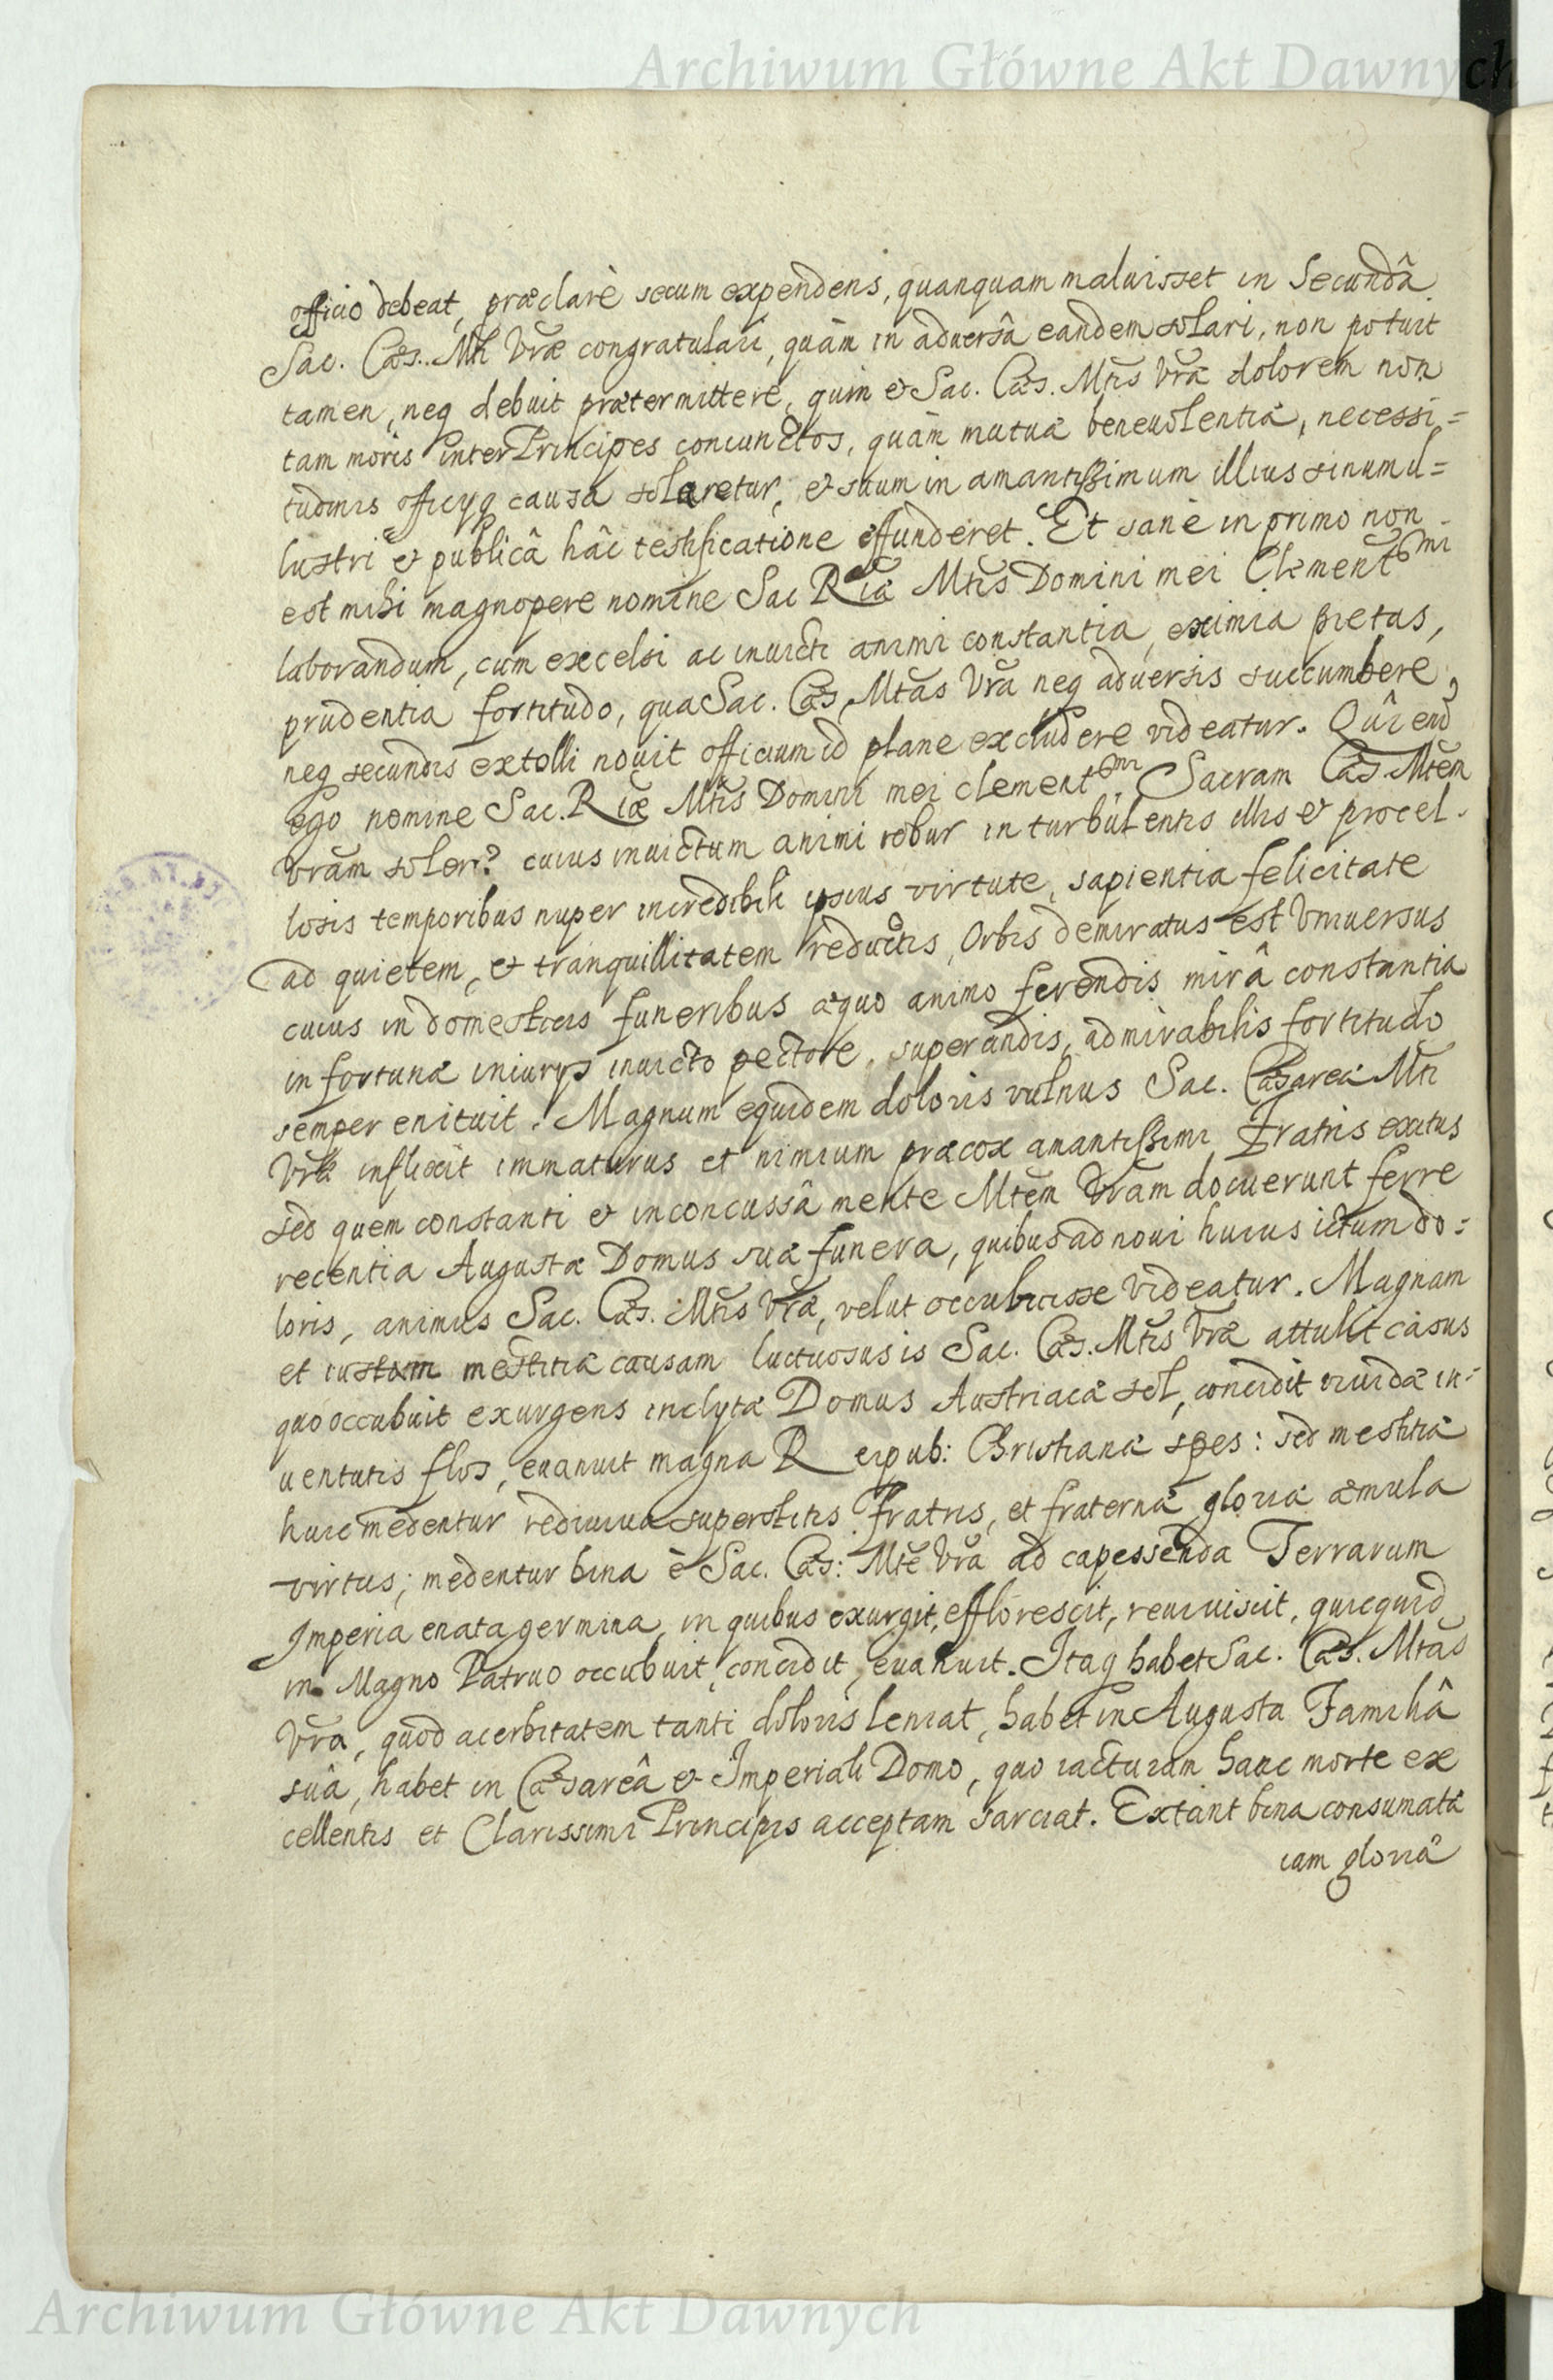 Archiwum Główne Akt Dawnych
officio debeat, præclarè secum expendens, quanquam maluisset in Secundâ
Sac. Cæs. Mti Vræ congratulari, quàm in aduersâ eandem solari, non potuit
tamen, neq debuit prætermittere, quin et Sac. Cæs. Mtis Vræ dolorem non
tam moris inter Principes coniunctos, quàm mutuæ beneuolentiæ, necessi=
tudinis officyq causa solaretur, et suum in amantissimum illius sinum il=
lustri et publicâ hâc testificatione effunderet. Et sanè in primo non
est mihi magnopere nomine Sac Riæ Mtis Domini mei Clementmi
laborandum, cum excelsi ac inuicti animi constantia, eximia pietas,
prudentia fortitudo, qua Sac. Cæs. Mtas Vra neq aduersis succumbere,
neq secundis extolli nouit officium id plane excludere videatur. Quî end
ego nomine Sac. Riæ Mtis Domini mei clementmi Sacram Cæs. Mtem
Vram soler? cuius inuictum animi robur in turbulentis illis et procel.
losis temporibus nuper incredibili ipsius virtute, sapientia felicitate
ad quietem, et tranquillitatem reductis, Orbis demiratus est Vniuersus
cuius in domesticis funeribus æquo animo ferendis mirâ constantia
in fortunæ iniurys inuicto pectore superandis, admirabilis fortitudo
semper enituit. Magnum equidem doloris vulnus Sac. Cæsareæ Mti
Vræ inflixit immaturus et nimium præcox amantissimi Fratris exitus
sed quem constanti et inconcussâ mente Mtem Vram docuerunt ferre
recentia Augustæ Domus suæ funera, quibus ad noui huius ictum do=
loris, animus Sac. Cæs. Mtis Vræ, velut occubuisse videatur. Magnam
et iustam mestitiæ causam luctuosus is Sac. Cæs. Mtis Vræ attulit casus
quo occubuit exurgens inclytæ Domus Austriacæ sol, concidit viuidæ in=
uentutis flos, euanuit magna Reipub: Christianæ spes: sed mestitiæ
huic medentur rediuiua superstitis Fratris, et fraternæ gloriæ æmula
virtus; medentur bina è Sac. Cæs: Mte Vra ad capessenda Terrarum
Imperia enata germina, in quibus exurgit, efflorescit, reuiuiscit, quicquid
in Magno Patruo occubuit, concidit, euanuit. Itaq habet Sac. Cæs. Mtas
Vra, quod acerbitatem tanti doloris leniat, habet in Augusta Familiâ
suâ, habet in Cæsareâ et Imperiali Domo, quo iacturam hanc morte ex
cellentis et Clarissimi Principis acceptam sarciat. Extant bina consumatæ
iam gloriæ
Archiwum Główne Akt Dawnych